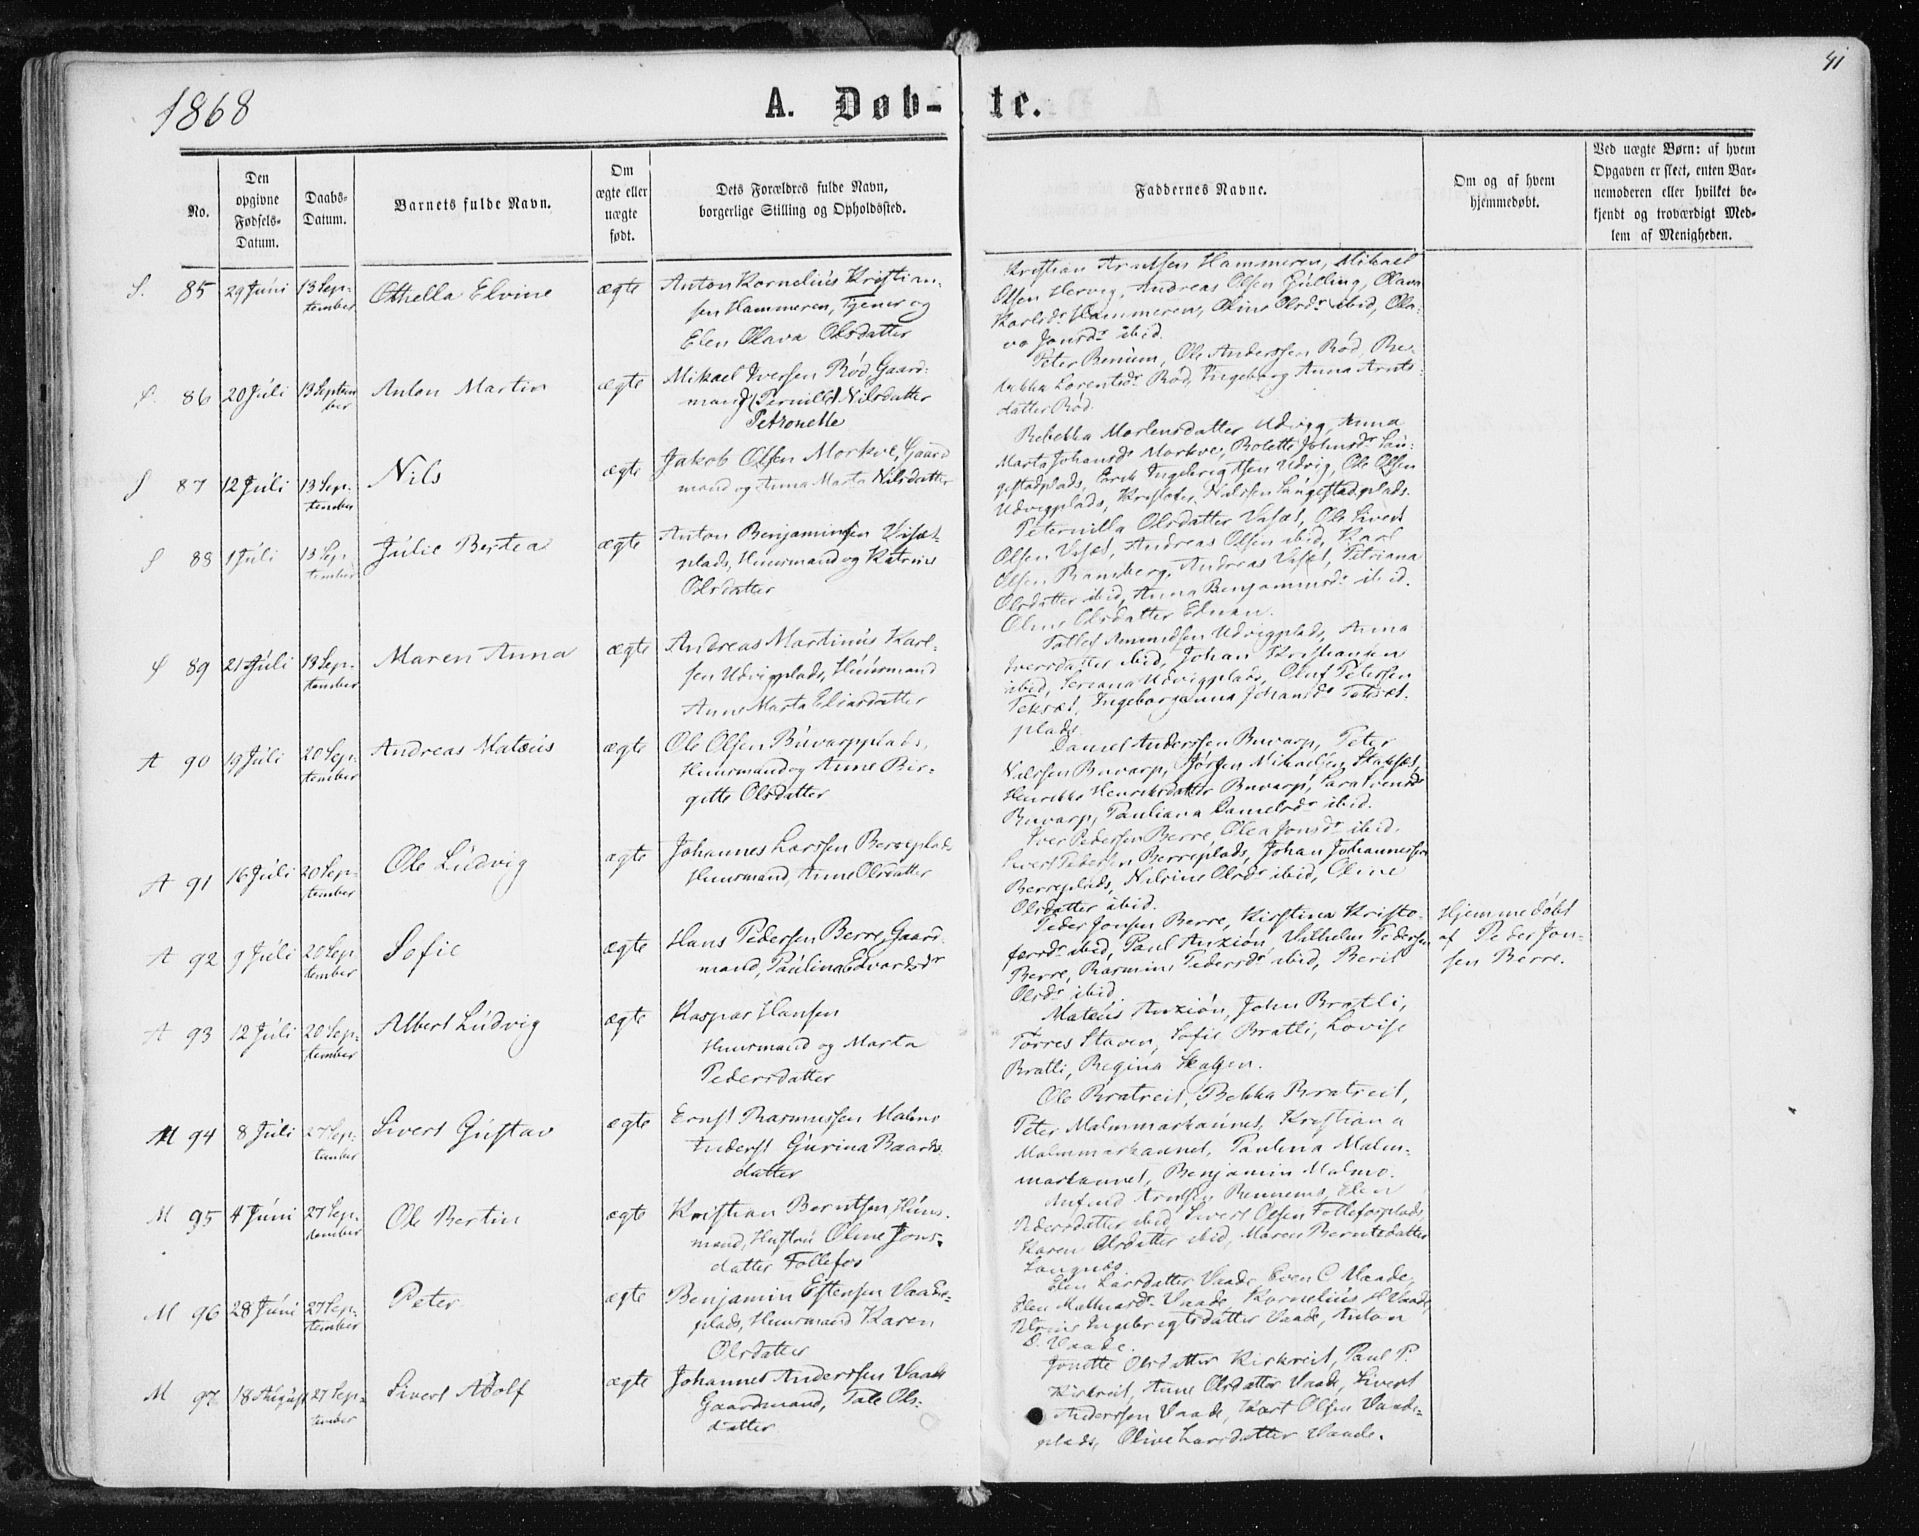 41
1868
A. Døb-
te.
No.
Den
opgivne
Fødsels-
Datum.
Daabs-
Datum.
Barnets fulde Navn.
Om
ægte eller
uægte
født.
Dets Forældres fulde Navn,
borgerlige Stilling og Opholdssted.
Faddernes Navne.
Om og af hvem
hjemmedøbt.
Ved uægte Børn: af hvem
Opgaven er skeet, enten Bar-
nemoderen eller hvilket be-
kjendt og troværdigt Med-
lem af Menigheden.
S. 85 29 Juni 13 Sep-
tember
Othella Elvine
ægte
Anton Kornelius Kristian-
sen Hammeren, Tjener og
Elen Olava Olsdatter
Kristian Arntsen Hammeren, Mikael
Olsen Hervig, Andreas Olsen Gulling, Olava
Karlsdr Hammeren, Oline Olsdr ibid, Ola-
va Jonsdr ibid.
S. 86 20 Juli 13 Septem
ber
Anton Martin
ægte
Mikael Iversen Rød, Gaard-
mand (Pernille) Nilsdatter
Petronelle
Peter Benum, Ole Anderssen Rød, Be-
rikka Lorentsdr Rød, Ingeborg Anna Arnts-
datter Rød.
S 87 12 Juli 13 Sep-
tember
Nils
ægte
Jakob Olsen Morkve, Gaard
mand og Anna Marta Nilsdatter
Rebekka Mortensdatter Udvigg, Anna
Marta Johansdr Morkve, Bolette Johnsdr Lan-
gestadplads, Erik Ingebrigtsen Udvig, Ole Olsen
Udvigplads, Kristofer Nilssen Langestadplads.
S 88 1 Juli 13 Sep-
tember
Julie Bertea
ægte
Anton Benjaminsen Viset-
plads, Huusmand og Katrine
Olsdatter
Peternilla Olsdatter Viset, Ole Sivert
Olsen Viset, Andreas Olsen ibid, Karl
Olsen Ramberg, Andreas Viset, Petriana
Olsdatter ibid, Anna Benjaminsdr ibid.
Oline Olsdatter Ednan.
S 89 21 Juli 13 Sep-
tember
Maren Anna
ægte
Andreas Martinus Karl-
sen Udvigplads, Huusmand
Anne Marta Eliasdatter
Tollef Amundsen Udvigplads, Anna
Iversdatter ibid, Johan Kristiansen
ibid, Seriana Udvigplads, Oluf Petersen
Teksæt, Ingeborganna Johansdr Teksæt.
plads.
A 90 19 Juli 20 Sep-
tember
Andreas Mateus
ægte
Ole Olsen Buvarpplads,
Huusmand og Anne Bir-
gitte Olsdatter
Daniel Anderssen Buvarp, Peter
Nilssen Buvarp, Jørgen Mikaelsen Stakset,
Henrikke Henriksdatter Buvarp, Sara Iversdr
Buvarp, Pauliana Danielsdr ibid.
A 91 16 Juli 20 Sep-
tember
Ole Ludvig
ægte
Johannes Larssen Berreplads
Huusmand, Anne Olsdatter
Iver Pedersen Berre, Olea Jonsdr ibid.
Sivert Pedersen Berreplads, Johan Johannessen
Berreplads, Nilsine Olsdr ibid, Oline
Olsdatter ibid.
A 92 9 Juli 20 Sep
tember
Sofie
ægte
Hans Pedersen Berre, Gaard-
mand, Paulina Edvardsdr
Peder Jonsen Berre, Kirstina Kristo-
fersdr ibid, Paul Anxion, Vilhelm Pedersen
Berre, Rasmine Pedersdr ibid, Berit
Olsdr ibid.
Hjemmedøbt
af Peder Jon-
sen Berre.
A 93 12 Juli 20 Sep-
tember
Albert Ludvig
ægte
Kaspar Hansen
Huusmand og Marta
Pedersdatter
Mateus Anxion, John Bratli,
Torres Staven, Sofie Bratli, Lovise
Bratli, Regina Skagen.
M 94 8 Juli 27 Sep-
tember
Sivert Gustav
ægte
Ernst Rasmussen Malmo
Inderst Gurina Baards-
datter
Ole Bratreit, Bekka Bratreit,
Peter Malmmarkaunet, Kristiana
Malmmarkaunet, Paulina Malm-
markaunet, Benjamin Malmo.
M 95 4 Juni 27 Sep-
tember
Ole Bertin
ægte
Kristian Berntsen Huus-
mand, Hustru Oline Jons-
datter Follefos
Anfind Arntsen Rennemo, Elen
Pedersdatter ibid, Sivert Olsen Follefosplads
Karen Olsdatter ibid, Maren Berntsdatter
Langnæs.
M 96 28 Juni 27 Sep-
tember
Peter
ægte
Benjamin Estensen Vaade-
plads, Huusmand Karen
Olsdatter
Elen Larsdatter Vaade, Even C Vaade,
Elen Mathiasdr Vaade, Kornelius H Vaade,
Petrine Ingebrigtsdatter Vaade, Anton
D. Vaade.
M 97 18 August 27 Sep-
tember
Sivert Adolf
ægte
Johannes Anderssen Vaade
Gaardmand, Tale Ols-
datter
Jonette Olsdatter Kirkreit, Paul P.
Kirkreit, Anne Olsdatter Vaade, Sivert
Anderssen Vaade, Kort Olsen Vaade-
plads, Olive Larsdatter Vaade.